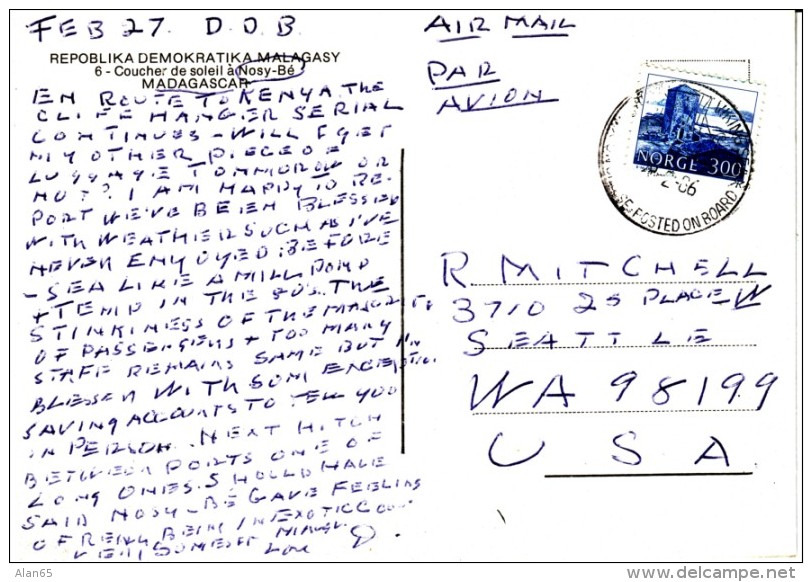 FEB 27. D.O.B.
REPOBLIKA DEMOKRATIKA MALAGASY
6 - Coucher de soleil à Nosy-Bé
MADAGASCAR
EN ROUTE TO KENYA. THE
CLIFF HANGER SERIAL
CONTINUES - WILL I GET
MY OTHER PIECE OF
LUGGAGE TOMMOROW OR
NOT? I AM HAPPY TO RE-
PORT WE'VE BEEN BLESSED
WITH WEATHER SUCH AS I'VE
NEVER ENJOYED BEFORE
- SEA LIKE A MILL POND
+ TEMP IN THE 80'S. THE
STINKINESS OF THE
OF PASSENGERS + TOO MANY
STAFF REMAINS SAME BUT
BLESSED WITH SOME
SAVING ACCOUNTS TO TELL YOU
IN PERSON. NEXT HITCH
BETWEEN PORTS ONE OF
LONG ONES. SHOULD HAVE
SAID NOSY-BE GAVE FEELING
OF REALLY BEING IN EXOTIC
SOMERSET
LOVE
AIR MAIL
PAR
AVION
NORGE 300
POSTED ON BOARD
R MITCHELL
3710 25 PLACE W
SEATTLE
WA 98199
USA.
Alan65
© delcampe.net